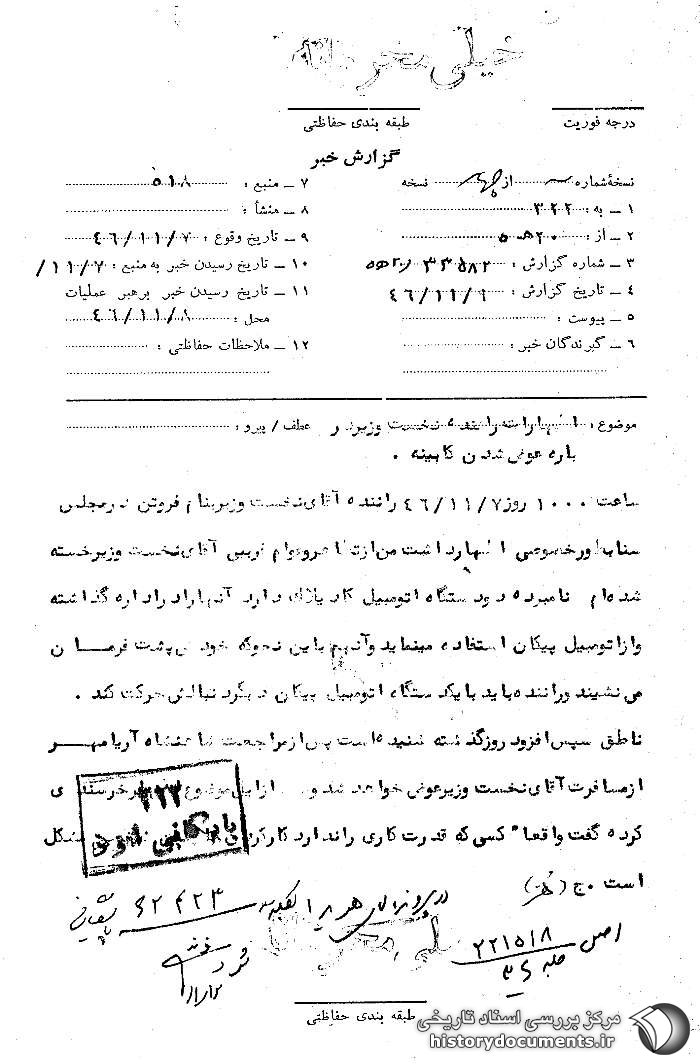 خیلی محرمانه
درجه فوریت
طبقه بندی حفاظتی
گزارش خبر
نسخهٔ شماره از چهار نسخه
۱ ـ به : ۳۲۲
۲ ـ از : ۲۰ ه ۵
۳ ـ شماره گزارش : ۳۳۵۸۲ / ۲۰ ه ۵
۴ ـ تاریخ گزارش : ۴۶/۱۱/۹
۵ ـ پیوست :
۶ ـ گیرندگان خبر :
۷ ـ منبع : ۵۱۸
۸ ـ منشأ :
۹ ـ تاریخ وقوع : ۴۶/۱۱/۷
۱۰ ـ تاریخ رسیدن خبر به منبع : ۱۱/۷/
۱۱ ـ تاریخ رسیدن خبر برهبر عملیات
محل : ۴۶/۱۱/۸
۱۲ ـ ملاحظات حفاظتی :
موضوع : اظهارات راننده نخست وزیر در عطف / پیرو :
باره عوض شدن کابینه .
ساعت ۱۰۰۰ روز ۴۶/۱۱/۷ راننده آقای نخست وزیر بنام فروتن در مجلس
سنا بطور خصوصی اظهار داشت من از تظاهر و عوام فریبی آقای نخست وزیر خسته
شده‌ام نامبرده دو دستگاه اتومبیل کادیلاک دارد آنها را در اداره گذاشته
و از اتومبیل پیکان استفاده مینماید و آنهم باین نحو که خودش پشت فرمان
می‌نشیند و راننده باید با یک دستگاه اتومبیل پیکان دیگر دنبالش حرکت کند .
ناطق سپس افزود روز گذشته شنیده است پس از مراجعت شاهنشاه آریامهر
از مسافرت آقای نخست وزیر عوض خواهد شد و از این موضوع خرسندی
کرده گفت واقعا" کسی که قدرت کاری را ندارد کار کردن مشکل
است . ج
۳۲۲
بایگانی شود
در پرونده هویدا ۶۲۴۲۳
اصل ۲۲۱۵۱۸
طبقه بندی حفاظتی
مرکز بررسی اسناد تاریخی
historydocuments.ir